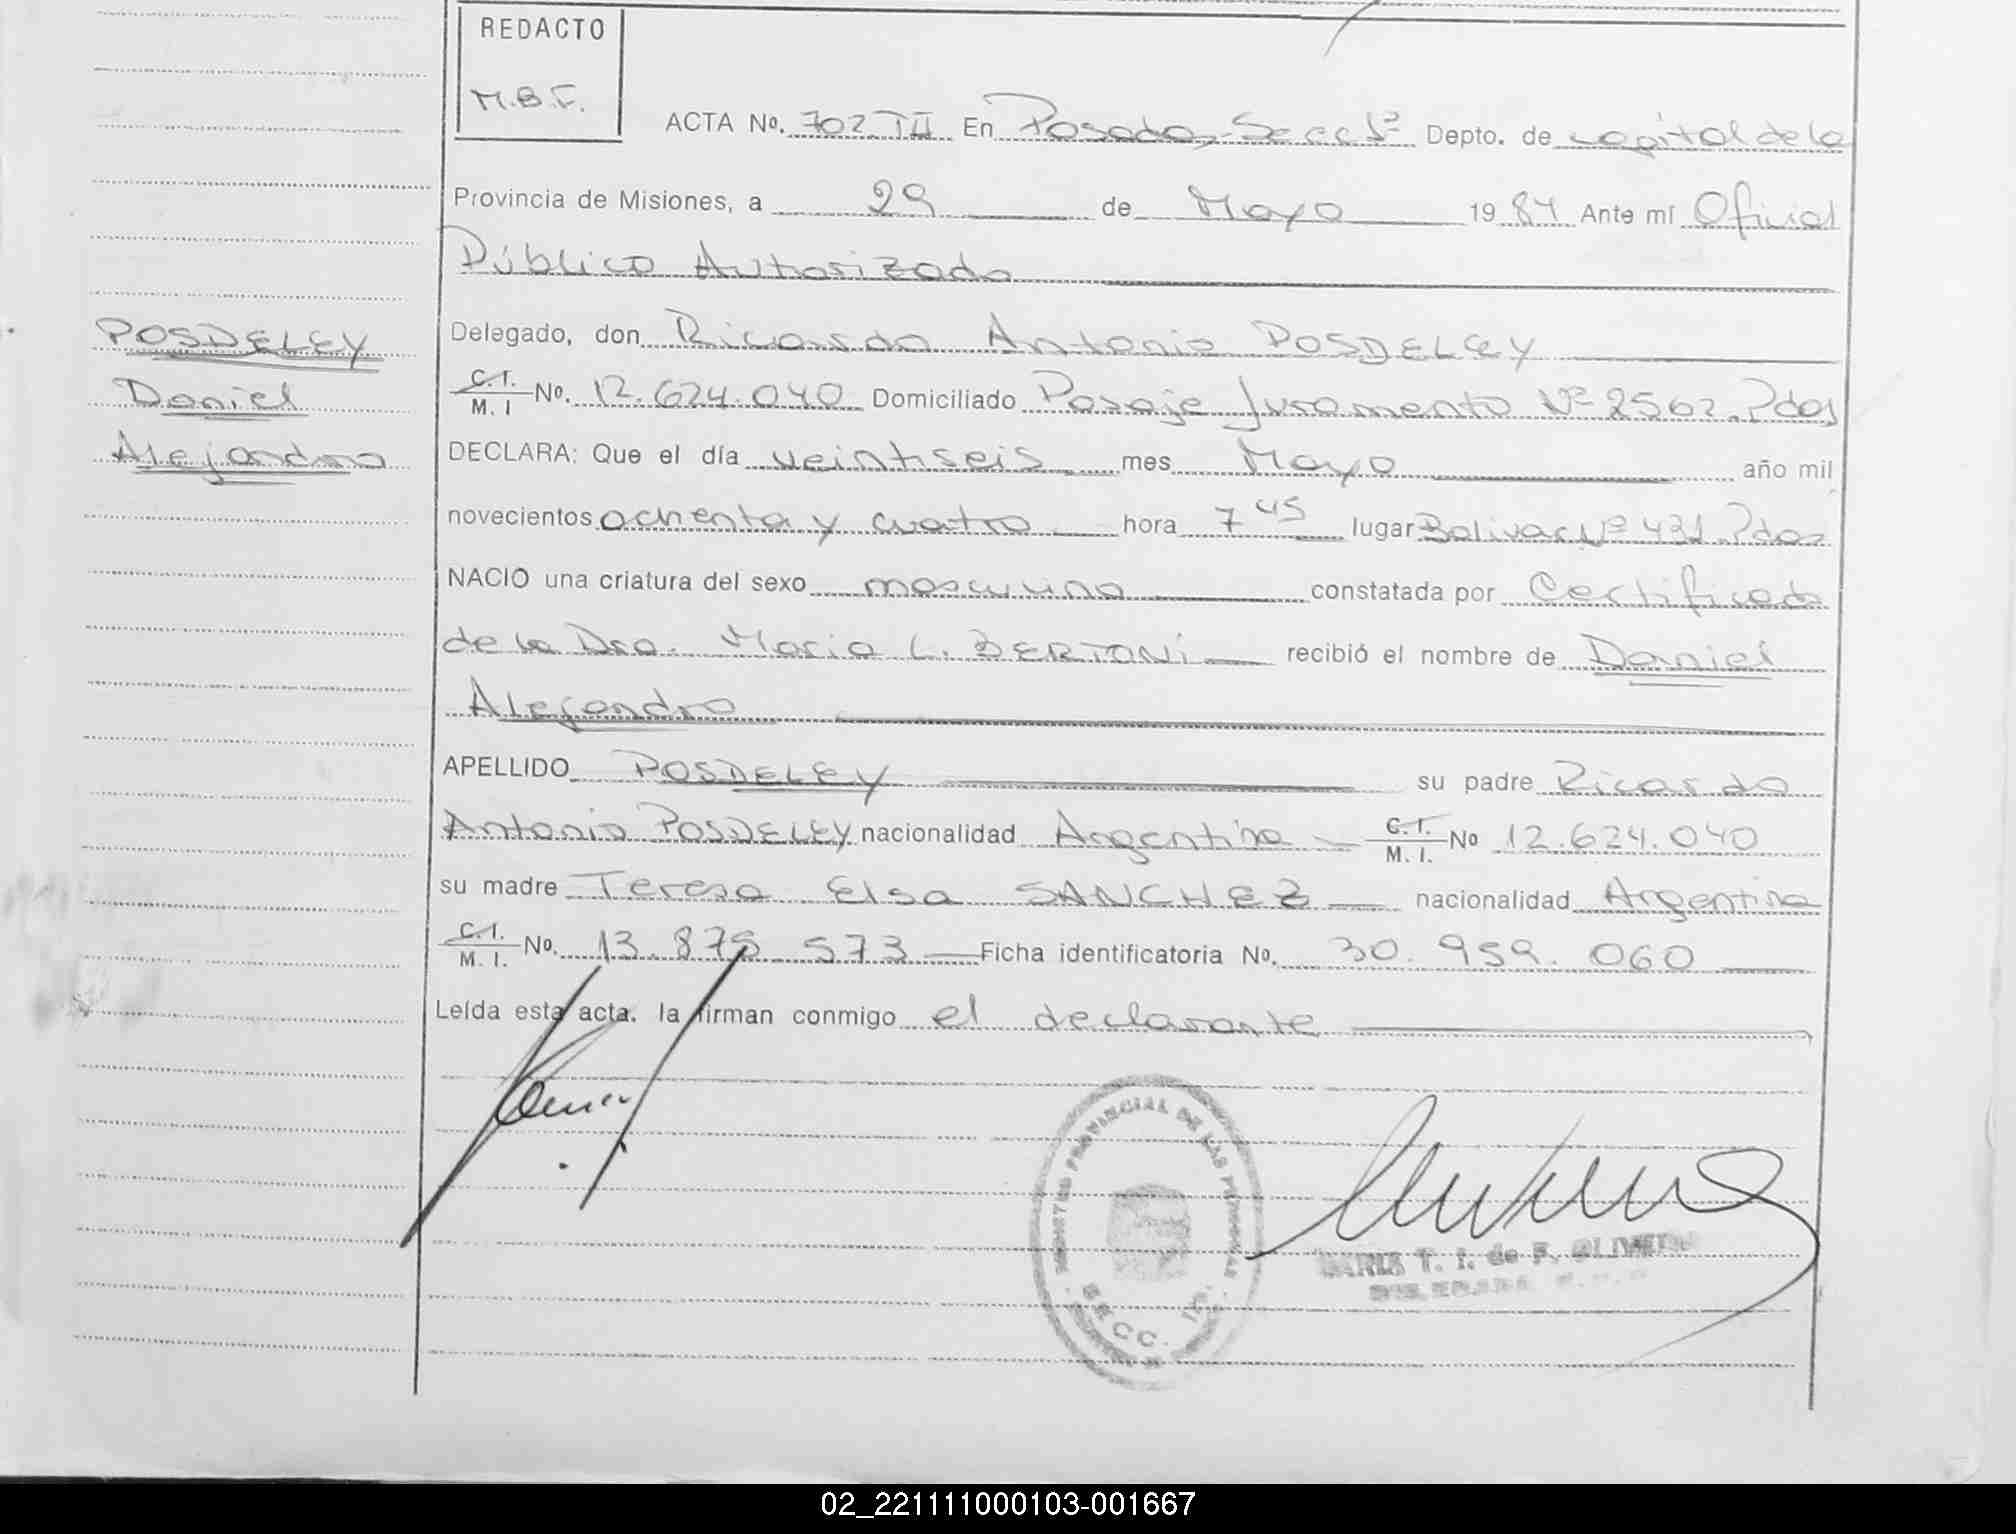 REDACTO
M.B.F.
ACTA No. 702 TII En Posadas Secc 1ª Depto. de capital de la
Provincia de Misiones, a 29 de Mayo 1984 Ante mí Oficial
Público Autorizado
POSDELEY
Delegado, don Ricardo Antonio POSDELEY
Daniel
C.I. / M. I No. 12.624.040 Domiciliado Pasaje Juramento Nº 2562. Pdas
Alejandro
DECLARA: Que el día veintiseis mes Mayo año mil
novecientos ochenta y cuatro hora 7 45 lugar Bolivar Nº 431. Pdas
NACIO una criatura del sexo masculino constatada por Certificado
de la Dra. Maria L. BERTONI recibió el nombre de Daniel
Alejandro
APELLIDO POSDELEY su padre Ricardo
Antonio POSDELEY nacionalidad Argentina C.I. / M. I. No 12.624.040
su madre Teresa Elsa SANCHEZ nacionalidad Argentina
C.I. / M. I. No. 13.875 573 Ficha identificatoria No. 30.959.060
Leída esta acta. la firman conmigo el declarante
PROVINCIAL DE LAS PERSONAS
SECC. 1ra.
T. I. de F. OLIVEIRA
02_221111000103-001667